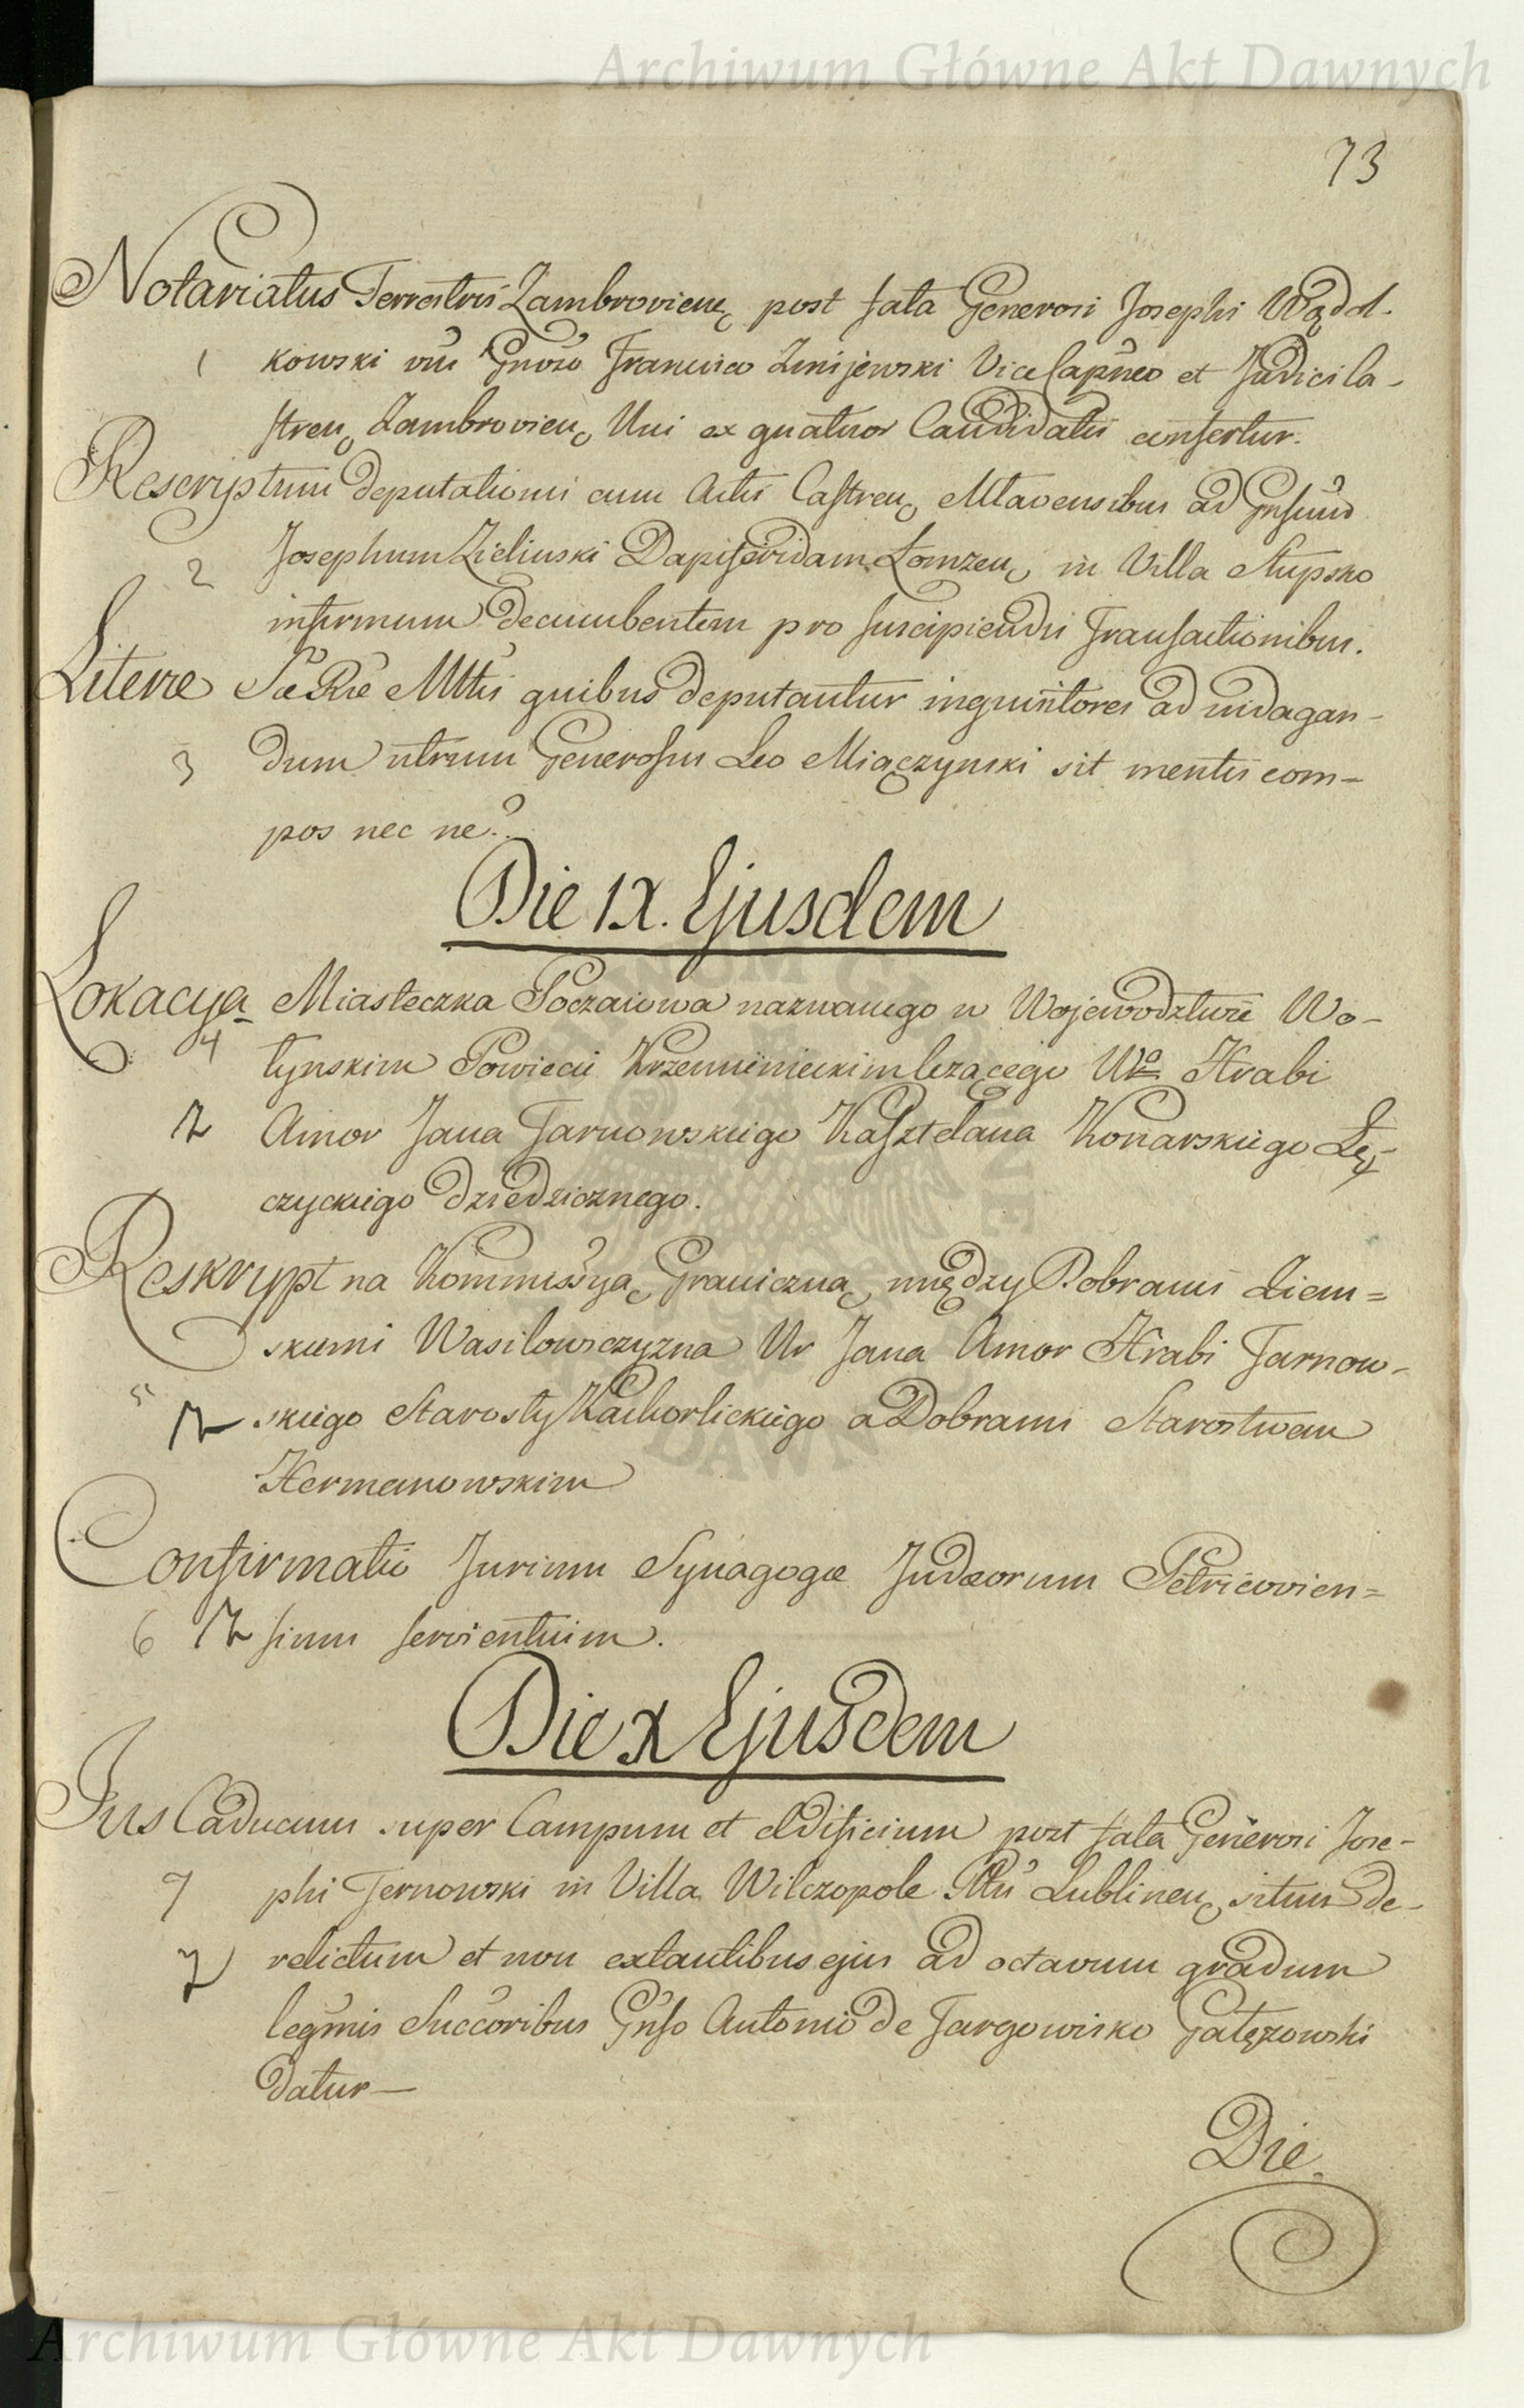 Archiwum Główne Akt Dawnych
73
Notariatus Terrestris Zambrovien, post fata Generosi Josephi Wądoł-
1 kowski vni Gnoso Francisco Zmijewski ViceCapneo et Judici Ca-
stren, Zambrovien, Uni ex quatuor Candidatis confertur.
Rescriptum deputationis cum Actis Castren, Mlavensibus ad Gnsum
2 Josephum Zieliński Dapiferidam Łomzen, in Villa Stupsko
infirmum decumbentem pro suscipiendis Transactionibus.
Literæ Sæ Ræ Mttis quibus deputantur inquisitores ad indagan-
3 dum utrum Generosus Leo Miączynski sit mentis com-
pos nec ne?
Die IX. Ejusdem
Lokacya Miasteczka Poczaiowa nazwanego w Wojewodztwie Wo-
4 łynskim Powiecie Krzemienieckim lezącego Wo Hrabi
Amor Jana Tarnowskiego Kasztelana Konarskiego Łę-
czyckiego dziedzicznego.
Reskrypt na Kommissyą Graniczną między Dobrami Ziem=
skiemi Wasilowszczyzna Ur Jana Amor Hrabi Tarnow-
5 skiego Starosty Kachorlickiego a Dobrami Starostwem
Hermanowskim
Confirmatio Jurium Synagogæ Judæorum Petricovien=
6 sium servientium.
Die X Ejusdem
Jus Caducum super Campum et Ædificium post fata Generosi Jose-
7 phi Ternowski in Villa Wilczopole Pttu Lublinen, situm de-
relictum et non extantibus ejus ad octavum gradum
legmis Succoribus Gnso Antonio de Targowisko Gałęzowski
datur—
Die
Archiwum Główne Akt Dawnych